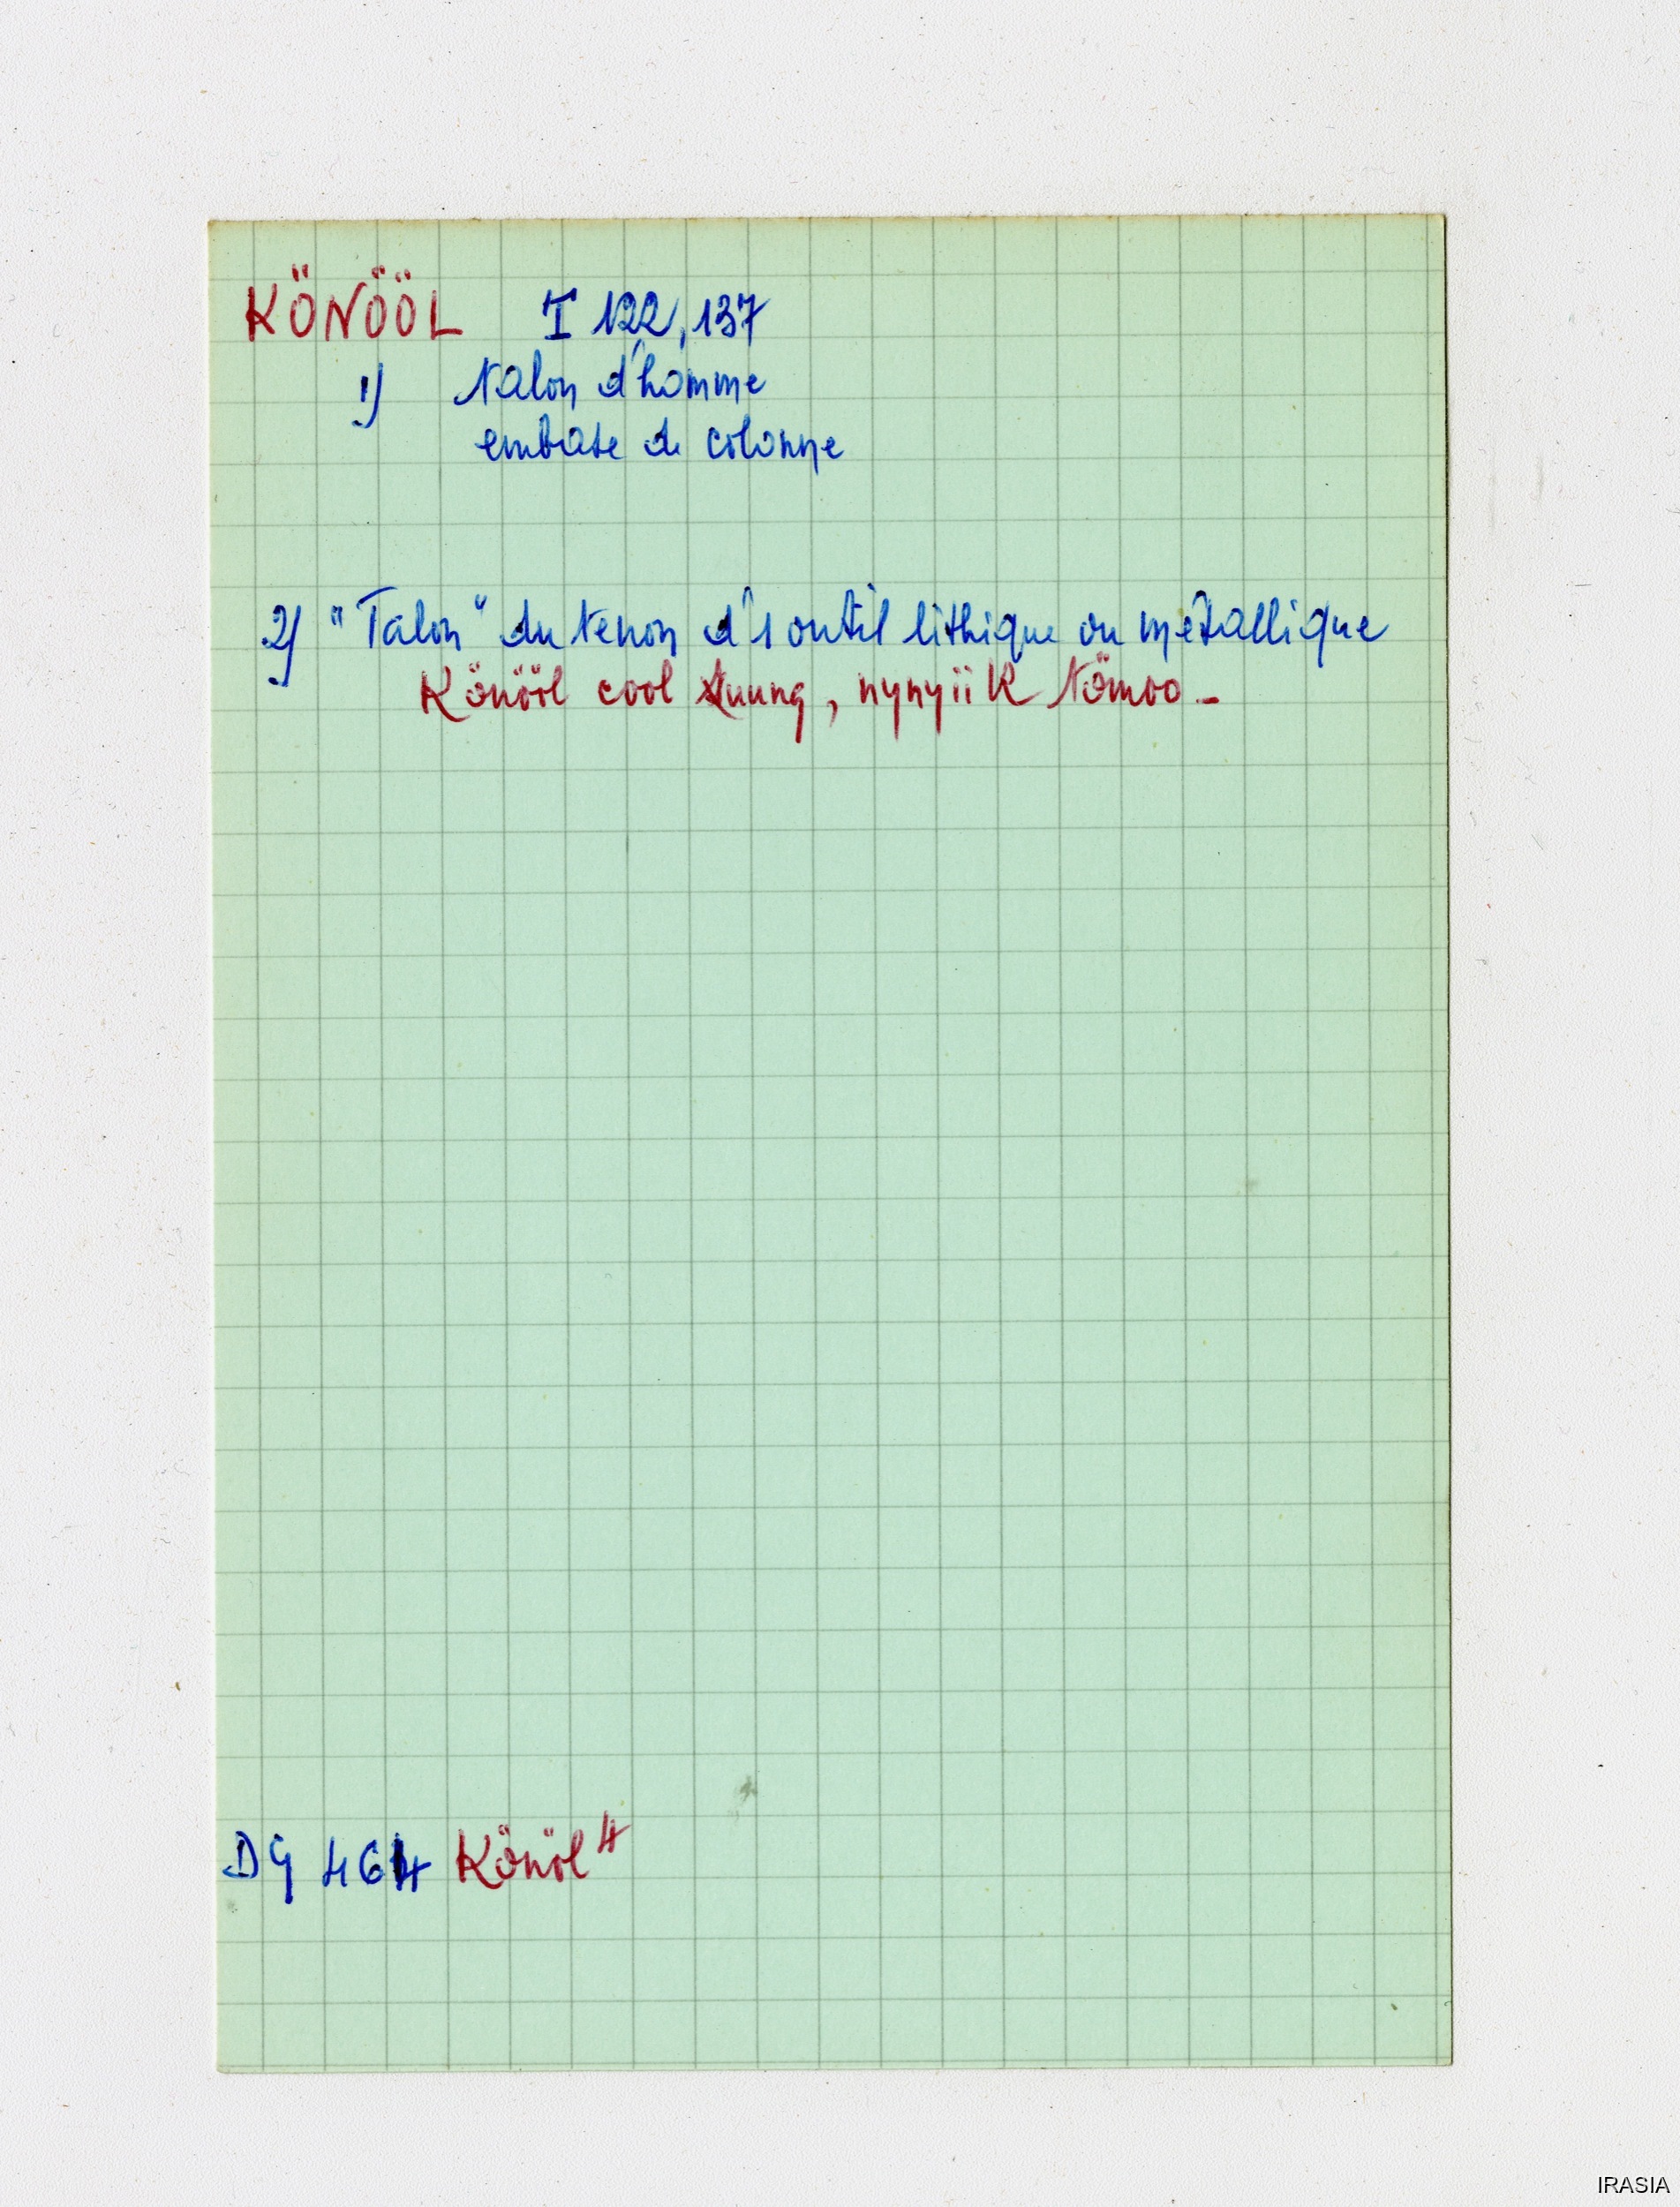 KÖNÖÖL I 122, 137
1) talon d'homme
embase de colonne
2) "Talon" du tenon d'1 outil lithique ou métallique
Könööl cool tuung, nynyiik tömoo -
DG 464 Könöl 4
IRASIA